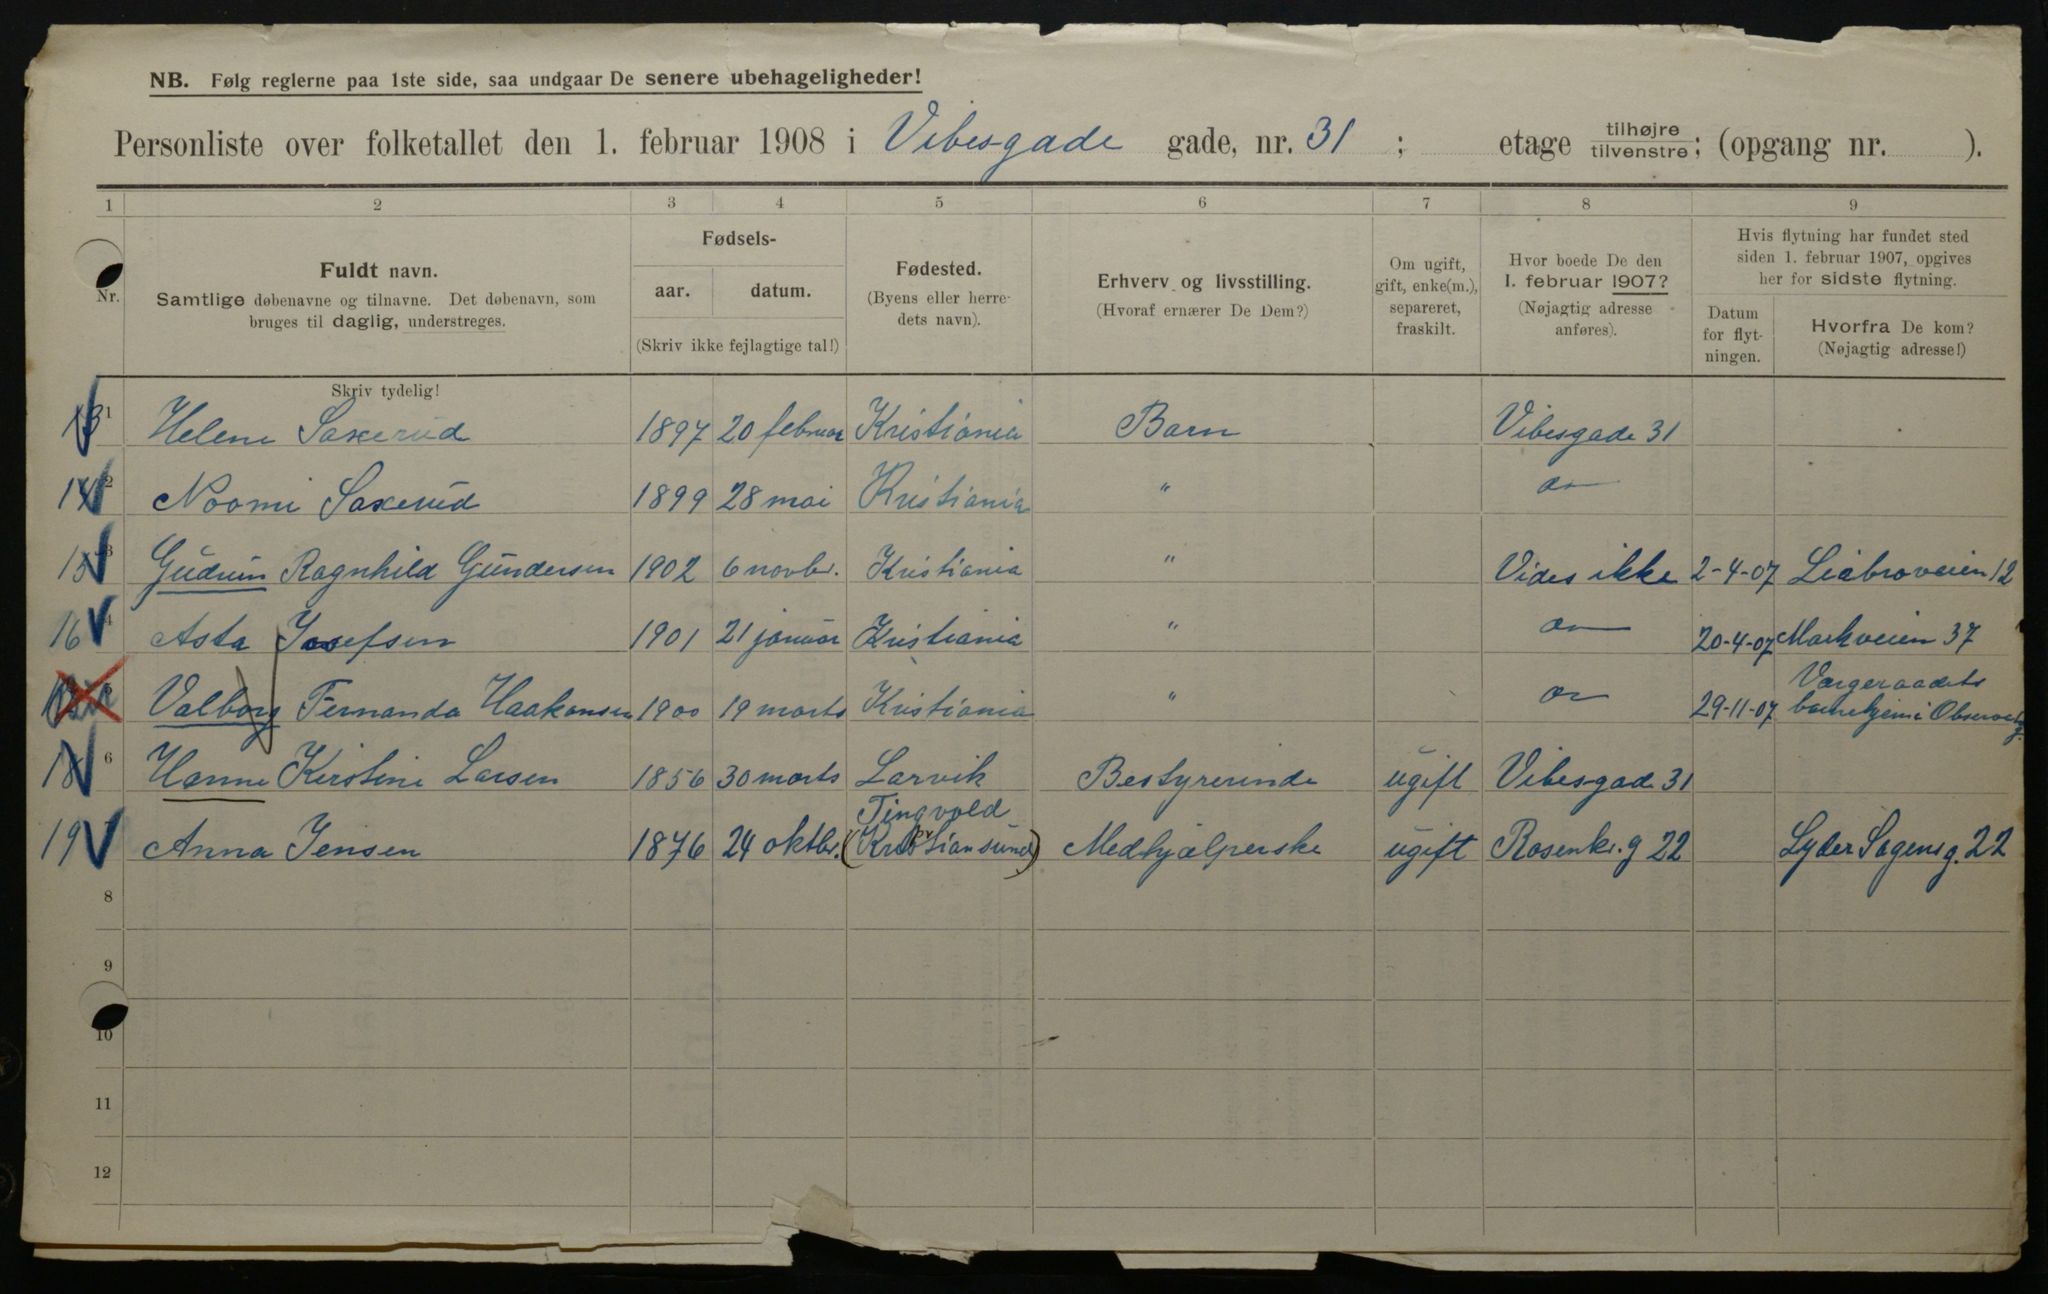 NB. Følg reglerne paa 1ste side, saa undgaar De senere ubehageligheder!
Personliste over folketallet den 1. februar 1908 i Vibesgade gade, nr. 31 ; etage tilhøjre tilvenstre; (opgang nr. ).
1 2 3 4 5 6 7 8 9
Nr.
Fuldt navn.
Samtlige døbenavne og tilnavne. Det døbenavn, som
bruges til daglig, understreges.
Skriv tydelig!
Fødsels-
aar. datum.
(Skriv ikke fejlagtige tal!)
Fødested.
(Byens eller herre-
dets navn).
Erhverv og livsstilling.
(Hvoraf ernærer De Dem?)
Om ugift,
gift, enke(m.),
separeret,
fraskilt.
Hvor boede De den
1. februar 1907?
(Nøjagtig adresse
anføres).
Hvis flytning har fundet sted
siden 1. februar 1907, opgives
her for sidste flytning.
Datum
for flyt-
ningen.
Hvorfra De kom?
(Nøjagtig adresse!)
13 1 Helene Saxerud 1897 20 februar Kristiania Barn Vibesgade 31
14 2 Noomi Saxerud 1899 28 mai Kristiania " do
15 3 Gudrun Ragnhild Gundersen 1902 6 novbr. Kristiania " Vides ikke 2-4-07 Liabroveien 12
16 4 Asta Josefsen 1901 21 januar Kristiania " do 20-4-07 Markveien 37
5 Valborg Fernanda Haakonsen 1900 19 marts Kristiania " do 29-11-07 Vergeraadets
barnehjem i Observatg.
18 6 Hanne Kirstine Larsen 1856 30 marts Larvik Bestyrerinde ugift Vibesgade 31
19 Anna Jensen 1876 24 oktbr. Tingvold
(Kristiansund) Medhjælperske ugift Rosenkr. g 22 Lyder Sagensg. 22
8
9
10
11
12